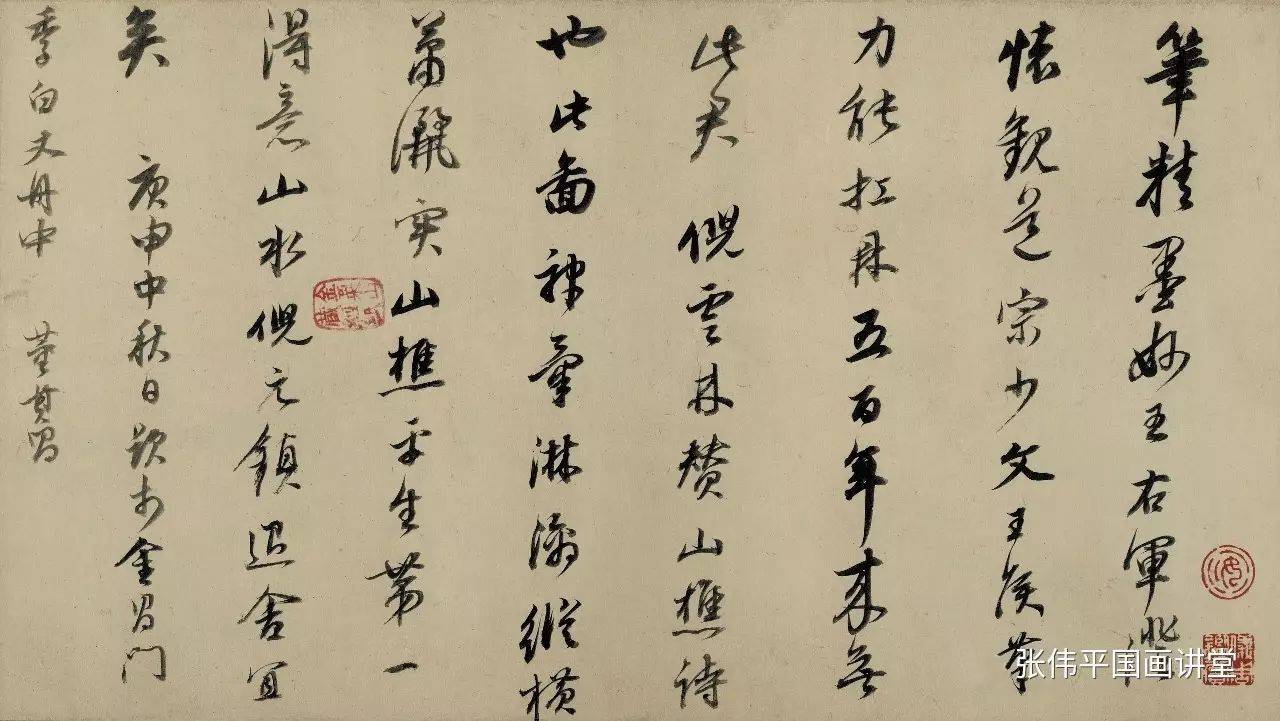 筆精墨妙王右軍澄
懷觀道宗少文王侯筆
力能扛鼎五百年來無
此君 倪雲林贊山樵詩
也此圖神氣淋漓縱橫
蕭灑實山樵平生第一
得意山水倪元鎮退舍宜
矣 庚申中秋日題於金昌門
季白丈舟中 董其昌
张伟平国画讲堂